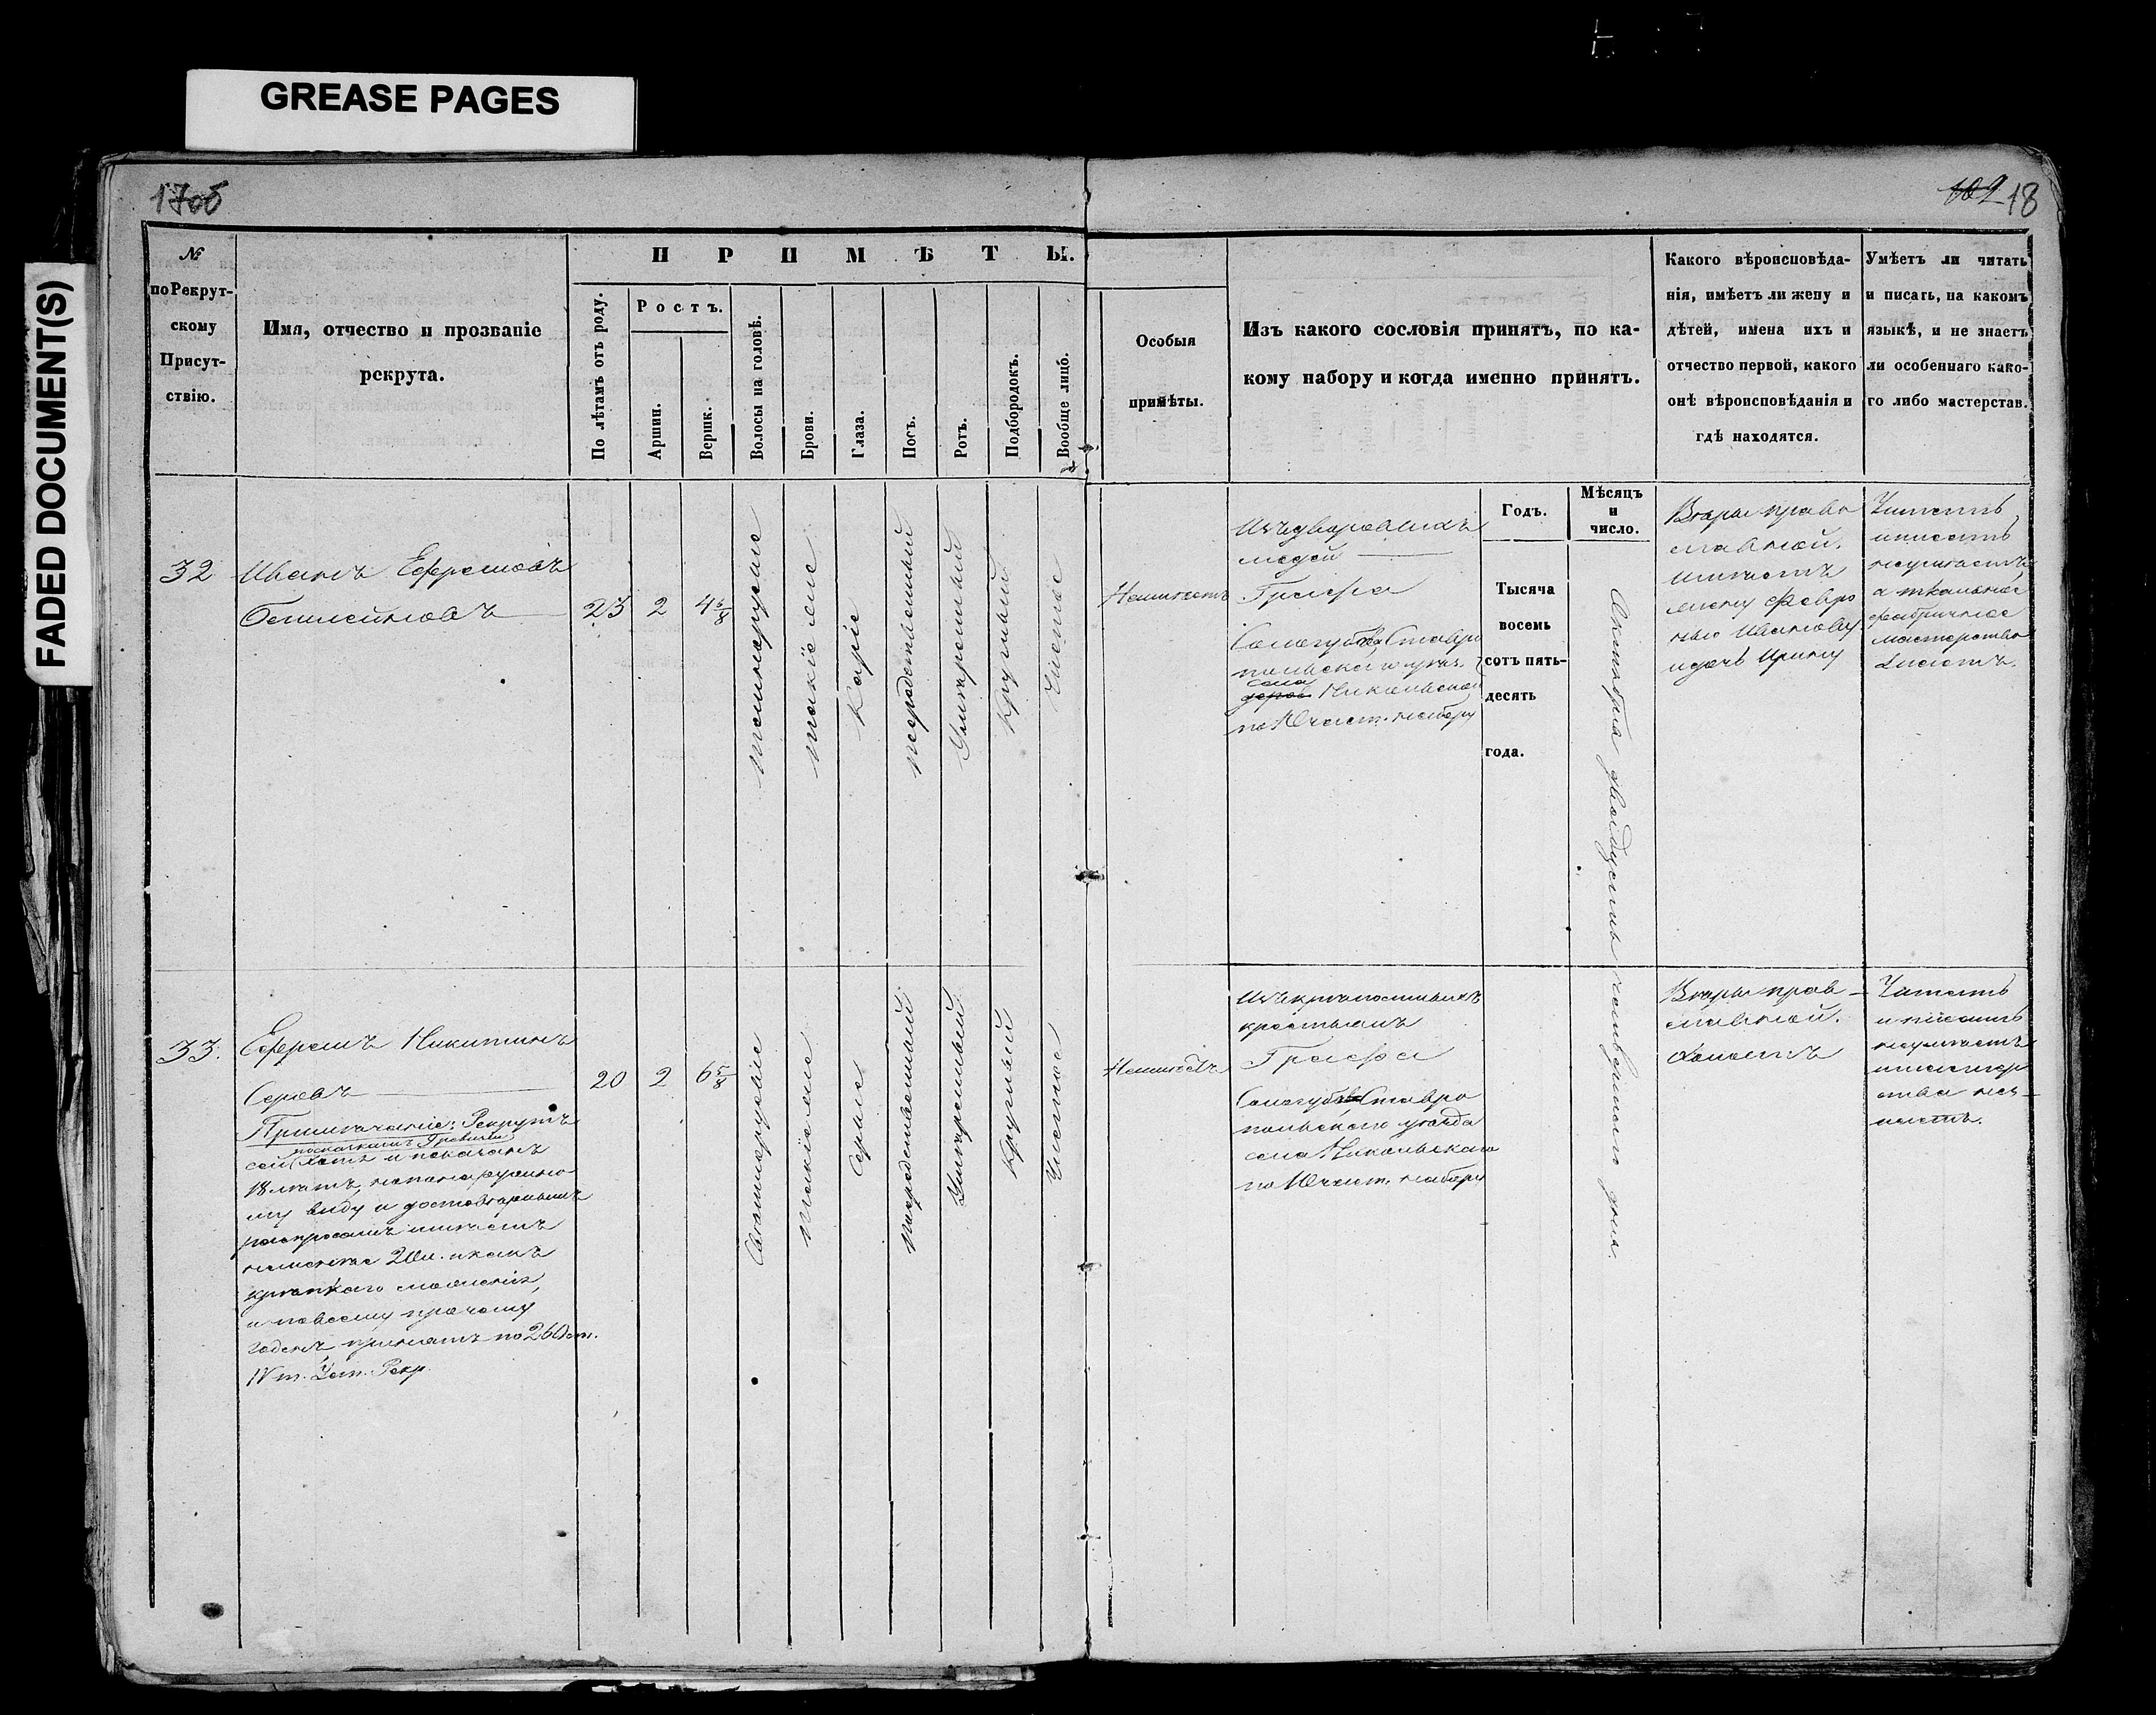 GREASE PAGES
FADED DOCUMENT(S)
17об
102 18
№ по Рекрут-
скому
Присут-
ствію.
Имя, отчество и прозваніе
рекрута.
П Р И М Ѣ Т Ы.
По лѣтамъ отъ роду.
Ростъ.
Аршин.
Вершк.
Волосы на головѣ.
Брови.
Глаза.
Носъ.
Ротъ.
Подбородокъ.
Вообще лицо.
Особыя
примѣты.
Изъ какого сословія принятъ, по ка-
кому набору и когда именно принятъ.
Какого вѣроисповѣда-
нія, имѣетъ ли жену и
дѣтей, имена ихъ и
отчество первой, какого
онѣ вѣроисповѣданія и
гдѣ находятся.
Умѣетъ ли читать
и писать, на какомъ
языкѣ, и не знаетъ
ли особеннаго како-
го либо мастерства.
32
Иванъ Ефремовъ
23
2
4 5/8
темнорусые
такіе же
Каріе
посредственный
Умѣренный
Круглый
Чистое
Неимѣетъ
Изъ дворовыхъ
людей
Графа
Сологуба Ставро
польскаго уѣз.
села
дерев. Никольскаго
по 10 част. набору
Годъ.
Тысяча
восемь
сотъ пять-
десять
года.
Мѣсяцъ
и
число.
Октября двадцать четвертаго дня.
Вѣры право
славной.
Имѣетъ
жену Февро
нью Иванову
и дочь Ирину
Читать
и писать
неумѣетъ
а ткальное
фабричное
мастерство
знаетъ.
33.
Ефремъ Никитинъ
Серовъ
Примѣчаніе: Рекрутъ
сей хотя и показанъ
18 лѣтъ, но по наружно
му виду и достовѣрнымъ
распросамъ имѣетъ
неменѣе 20 л. и какъ
крѣпкаго сложенія,
и по всему прочему
годенъ принятъ по 260 ст.
IV т. Уст. Рекр.
20
2
6 5/8
Светлорусые
такіе же
Серые
посредственный
Умѣренный
Круглый
Чистое
Неимѣетъ
Изъ крѣпостныхъ
крестьянъ
Графа
Сологуба Ставро
польскаго уѣзда
села Никольскаго
по 10 част. набору
Вѣры прав-
славной.
Холостъ
Читать
и писать
неумѣетъ
и мастер
ства не з-
наетъ.